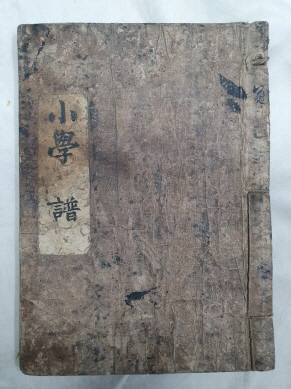 小學
譜